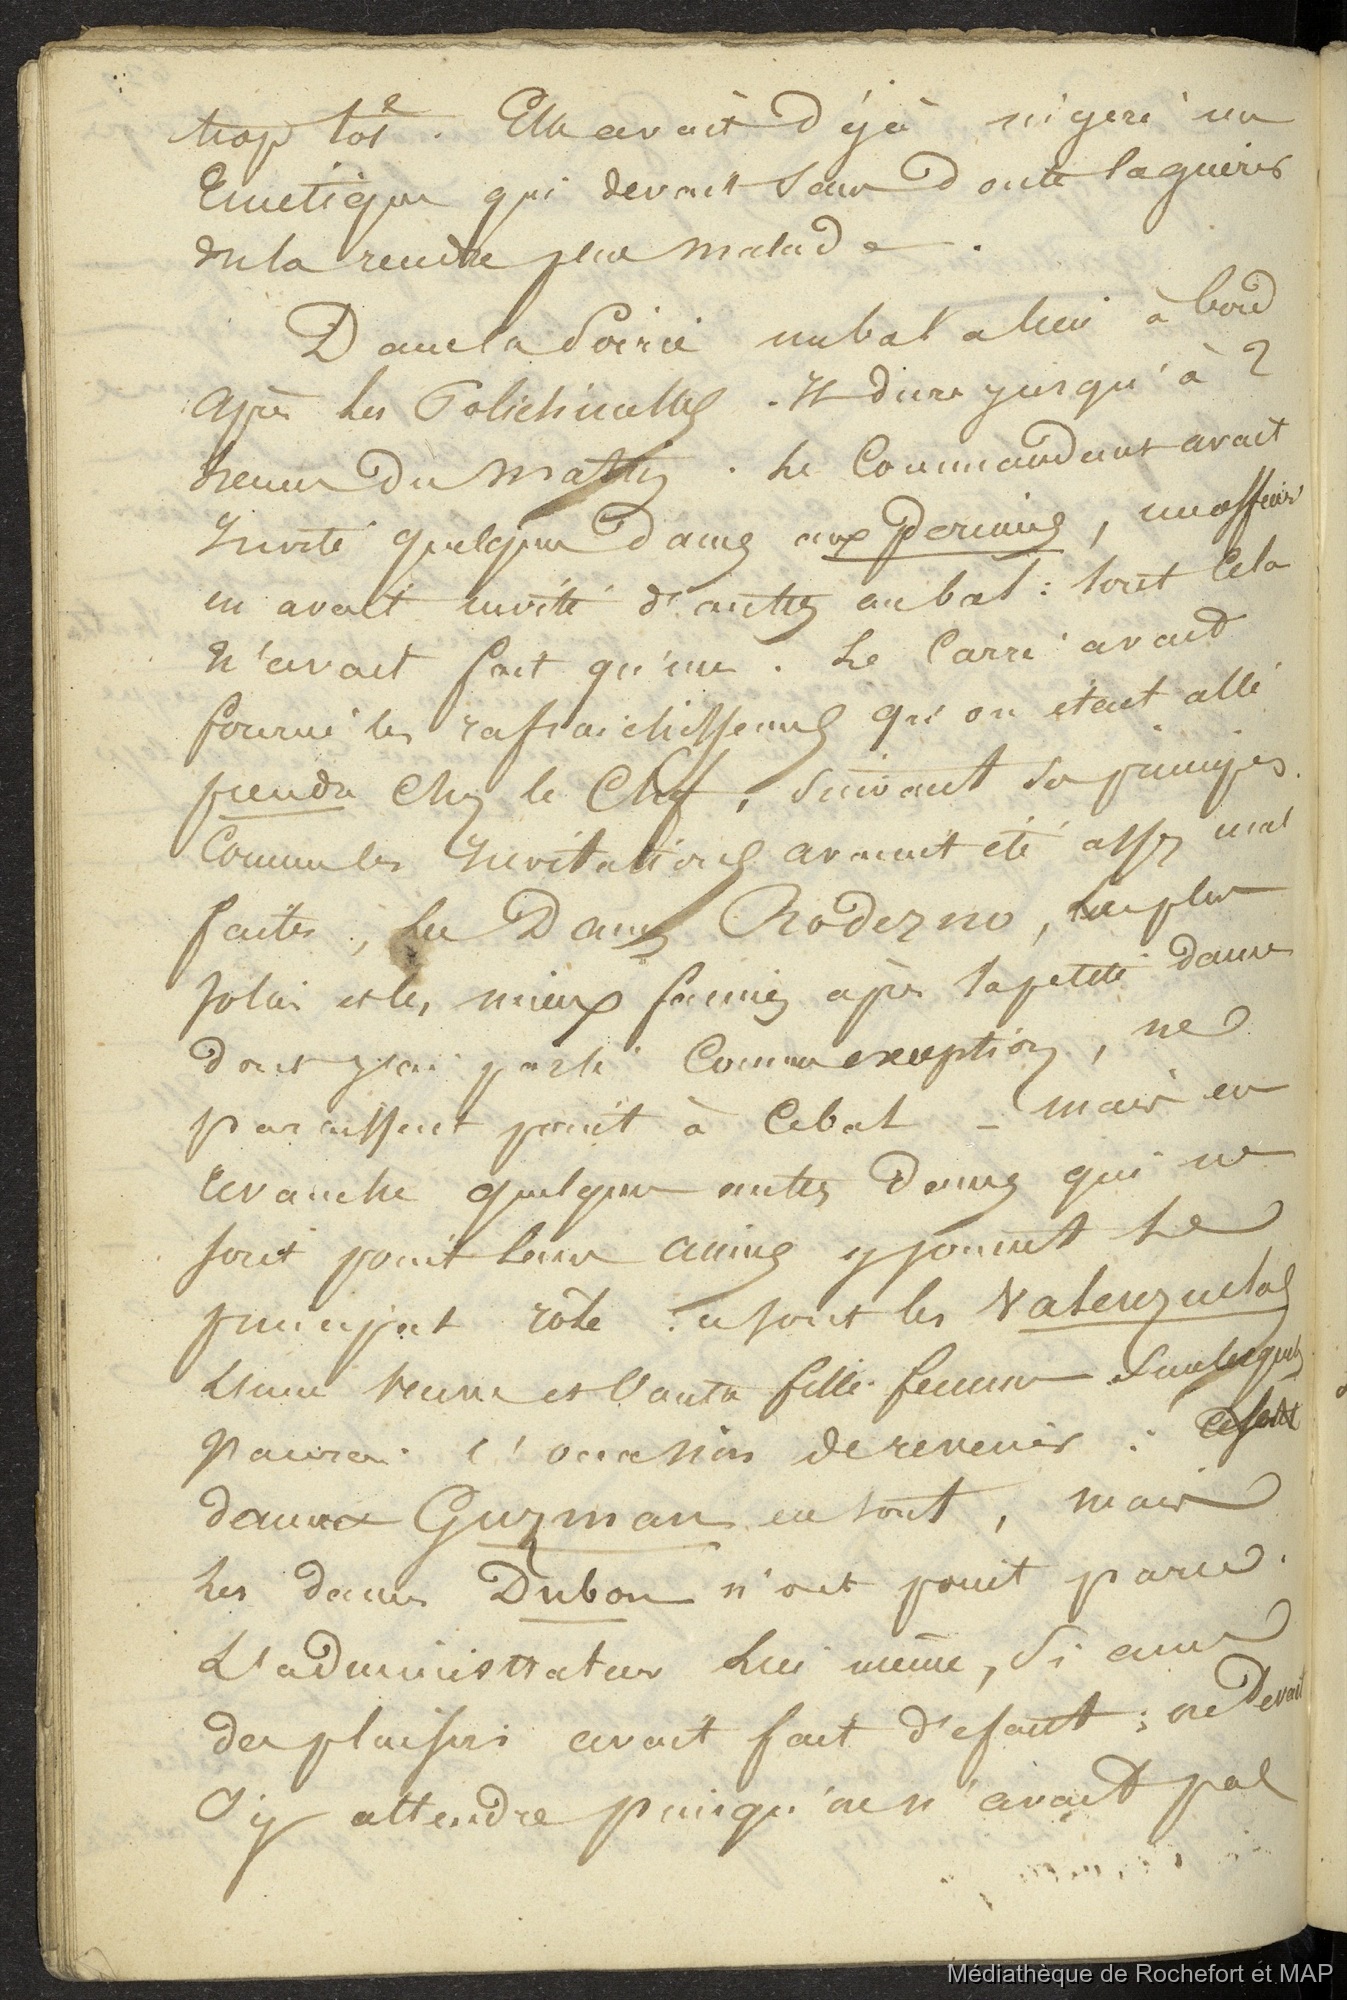 trop tôt. Elle avait déjà ingéré un
Emétique qui devait sans doute la guérir
ou la rendre plus malade.
Dans la soirée un bal a lieu à bord
après les Polichinelles. Il dure jusqu'à 2
heures du matin. Le Commandant avait
Invité quelques dames aux Pernins, un officier
en avait invité d'autres au bal : tout cela
n'avait fait qu'un. Le Carré avait
fourni les rafraichissemens qu'on était allé
prendre chez le Chef, suivant ses principes.
Comme les Invitations avaient été assez mal
faites, les Dames Roderno, les plus
jolies et les mieux famées après la petite dame
dont j'ai parlé comme exception, ne
paraissent point à ce bal - mais en
revanche quelques autres Dames qui ne
sont point leurs amies y jouent le
principal rôle : ce sont les Valenzuelas
L'une veuve et l'autre fille femme sur lesquels
j'aurai l'occasion de revenir :
dames Guzman en sont, mais
les dames Dubon n'ont point paru.
L'administrateur lui même, si ami
des plaisirs avait fait défaut ; on devait
s'y attendre puisqu'on n'avait pas
Médiathèque de Rochefort et MAP